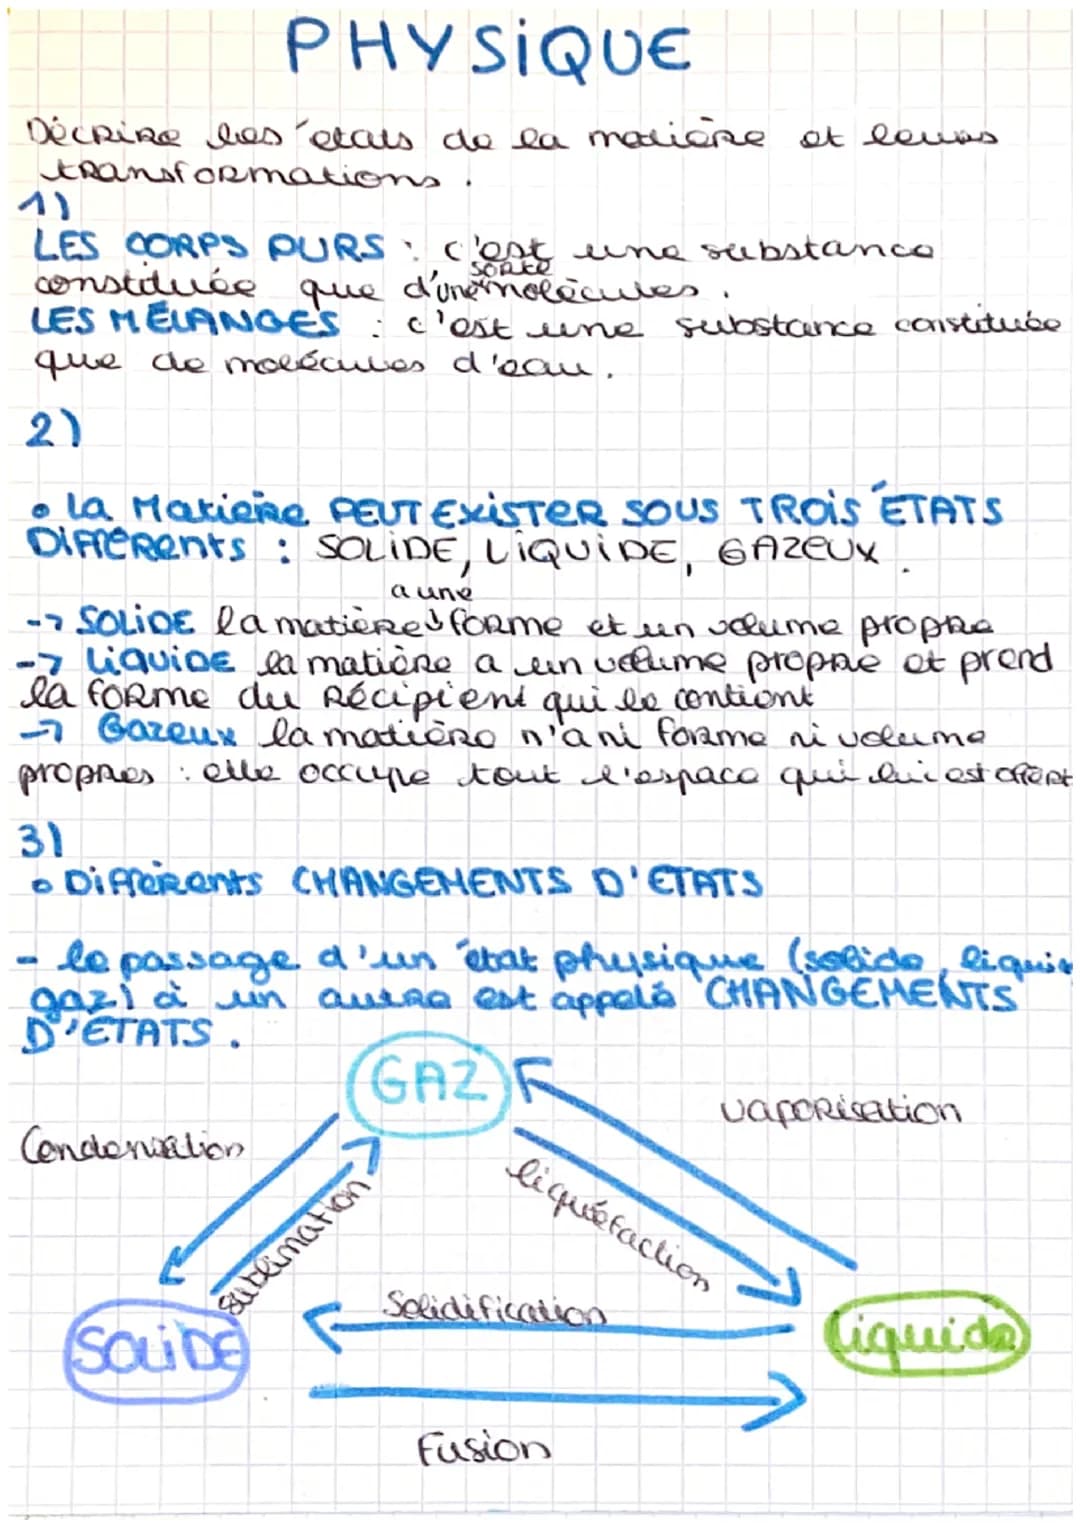 PHYSiQUE
Décrire les états de la matière et leurs
transformations.
1)
LES CORPS PURS : c'est une substance
sorte
constituée que d'une molécules.
LES MÉLANGES : c'est une substance constituée
que de molécules d'eau.
2)
• La Matière PEUT EXiSTER SOUS TROiS ÉTATS
Différents : SOLiDE, LiQUiDE, GAZEUX.
a une
-> SOLiDE la matière ↓ forme et un volume propre
-> LiQUiDE la matière a un volume propre et prend
la forme du Récipient qui le contient
-> Gazeux la matière n'a ni forme ni volume
propres : elle occupe tout l'espace qui lui est offert
3)
• Différents CHANGEMENTS D'ETATS
- le passage d'un état physique (solide, liquie
gaz) à un autre est appelé CHANGEMENTS
D'ÉTATS.
GAZ
vaporisation
Condensation
liquéfaction
sublimation
Solidification
SOLiDE
liquide
Fusion